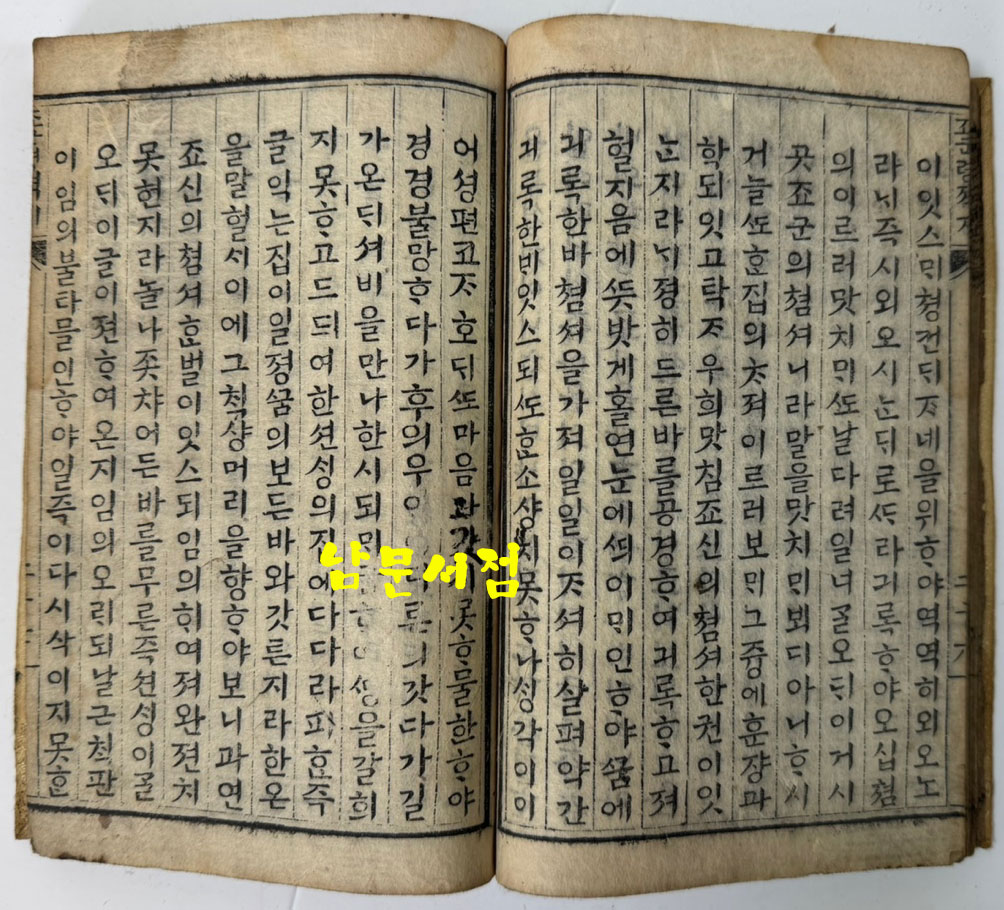 이잇스ᄆᆡ쳥컨ᄃᆡᄌᆞ네을위ᄒᆞ야역역히외오노
라ᄂᆡ즉시외오시ᄂᆞᆫᄃᆡ로ᄯᅡ라긔록ᄒᆞ야오십쳠
의이르러맛치ᄆᆡᄯᅩ날다려일너ᄀᆞᆯ오ᄃᆡ이거시
곳죠군의쳠셔니라말을맛치ᄆᆡ뵈디아니ᄒᆞ시
거늘ᄯᅩᄒᆞᆫ집의ᄎᆞ져이르러보ᄆᆡ그즁에훈쟝과
학되잇고탁ᄌᆞ우희맛침죠신의쳠셔한권이잇
ᄂᆞᆫ지라ᄂᆡ졍히드른바를공경ᄒᆞ여긔록ᄒᆞ고져
헐지음에ᄯᅳᆺ밧게홀연눈에ᄯᅴ이ᄆᆡ인ᄒᆞ야ᄭᅮᆷ에
긔록한바쳠셔을가져일일이ᄌᆞ셔히살펴약간
긔록한ᄇᆡ잇스되ᄯᅩᄒᆞᆫ쇼샹치못ᄒᆞ나ᄉᆡᆼ각이이
어셩편코ᄌᆞ호ᄃᆡᄯᅩ마음과 못ᄒᆞ물한ᄒᆞ야
경경불망ᄒᆞ다가후의우 갓다가길
가온ᄃᆡ셔비을만나한시되ᄆᆡ 을갈희
지못ᄒᆞ고드듸여한션ᄉᆡᆼ의집에다다라피ᄒᆞᆫ즉
글익는집이일졍ᄭᅮᆷ의보든바와갓튼지라한온
을말헐ᄉᆡ이에그ᄎᆡᆨ샹머리을향ᄒᆞ야보니과연
죠신의쳠셔ᄒᆞᆫ벌이잇스되임의ᄒᆡ여져완젼치
못헌지라놀나좃챠어든바를무른즉션ᄉᆡᆼ이ᄀᆞᆯ
오ᄃᆡ이글이젼ᄒᆞ여온지임의오ᄅᆡ되날근ᄎᆡᆨ판
이임의불타믈인ᄒᆞ야일즉이다시삭이지못ᄒᆞᆫ
남문서점